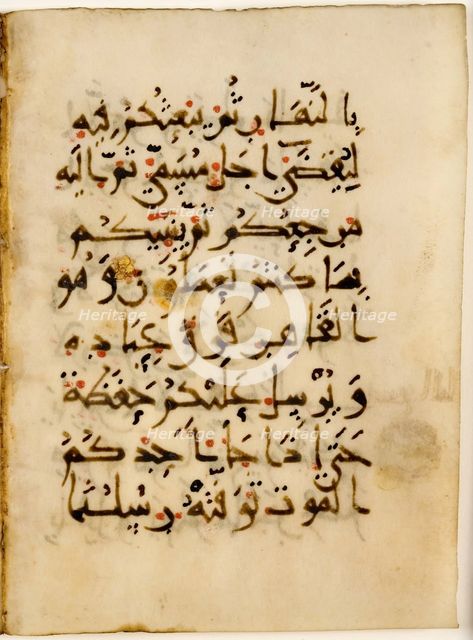 بالنهار ثم يبعثكم فيه
ليقضى اجل مسمى ثم اليه
Heritage Heritage
مرجعكم ثم ينبئكم
بما كنتم تعملون وهو
Heritage © Heritage
القاهر فوق عباده
ويرسل عليكم حفظة
Heritage Heritage
حتى اذا جا احدكم
الموت توفته رسلنا